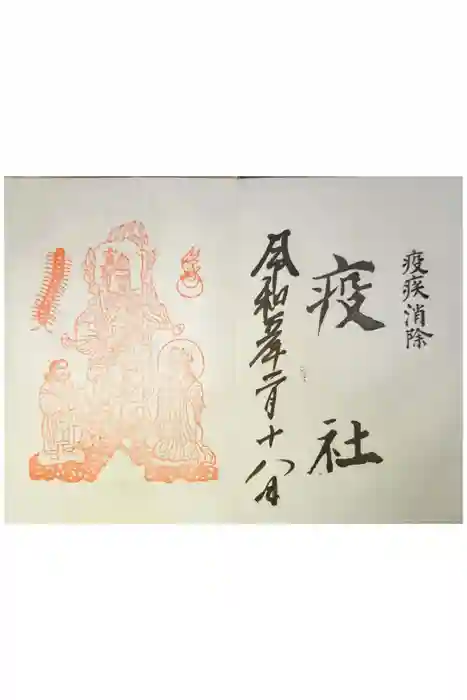 疫疾消除
疫社
令和五年二月十八日